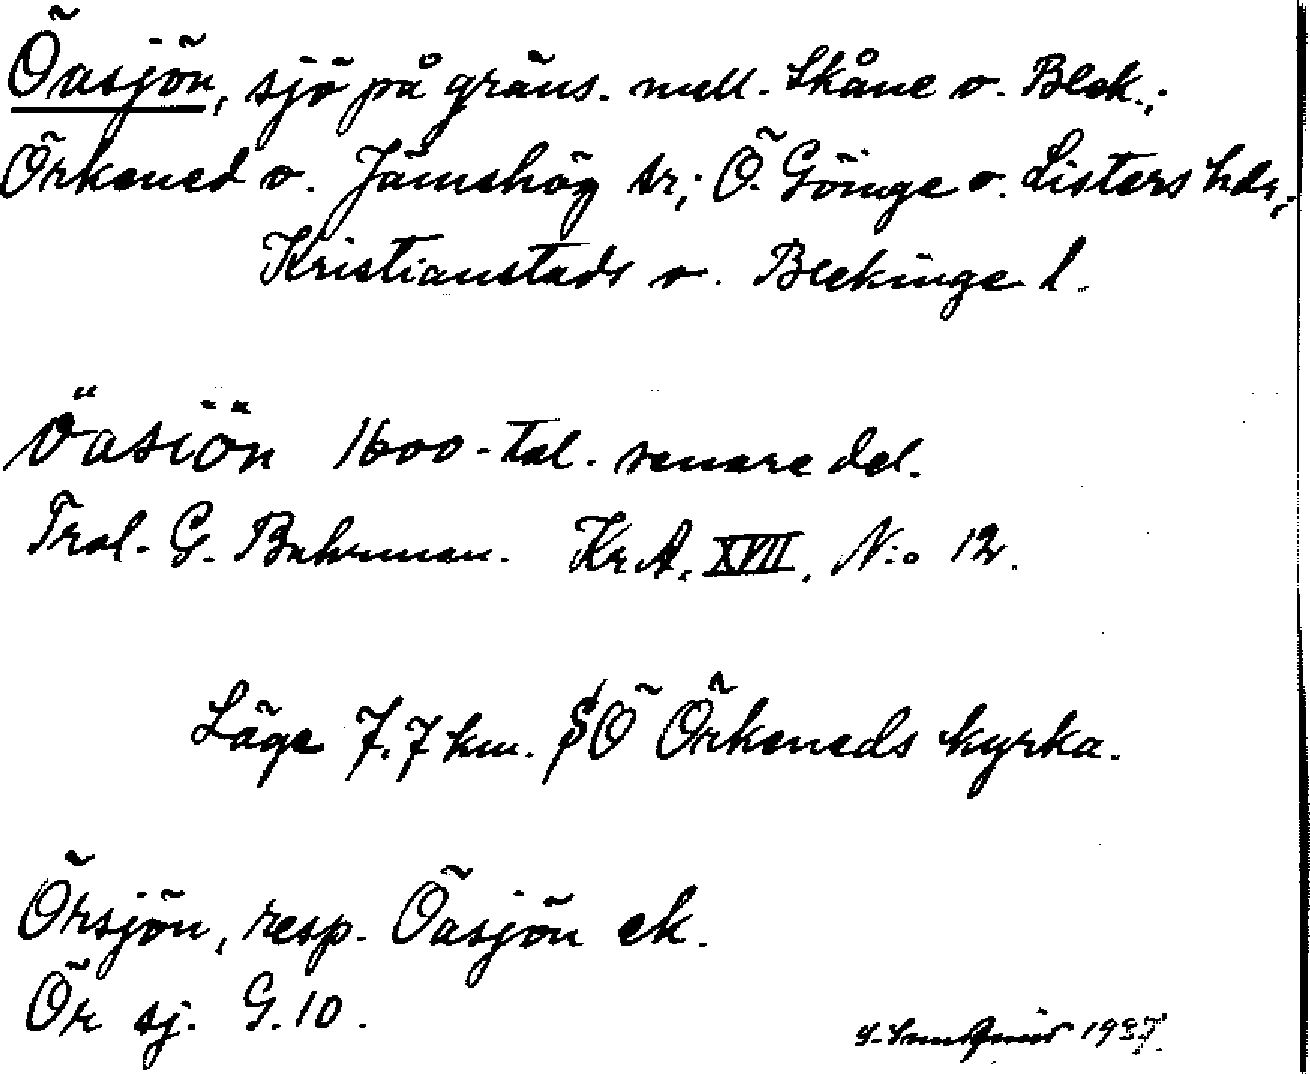 Öasjön, sjö på gräns. mell. Skåne o. Blek.;
Örkened o. Jämshög sr; Ö. Göinge o. Listers hdr;
Kristianstads o. Blekinge l.
Öasiön 1600-tal. senare del.
Tral. G. Buhrman. Kr.A. XVII. N:o 12.
Läge 7.7 km. SÖ Örkeneds kyrka.
Örsjön, resp. Öasjön ek.
Ör sj. G. 10.
1937.